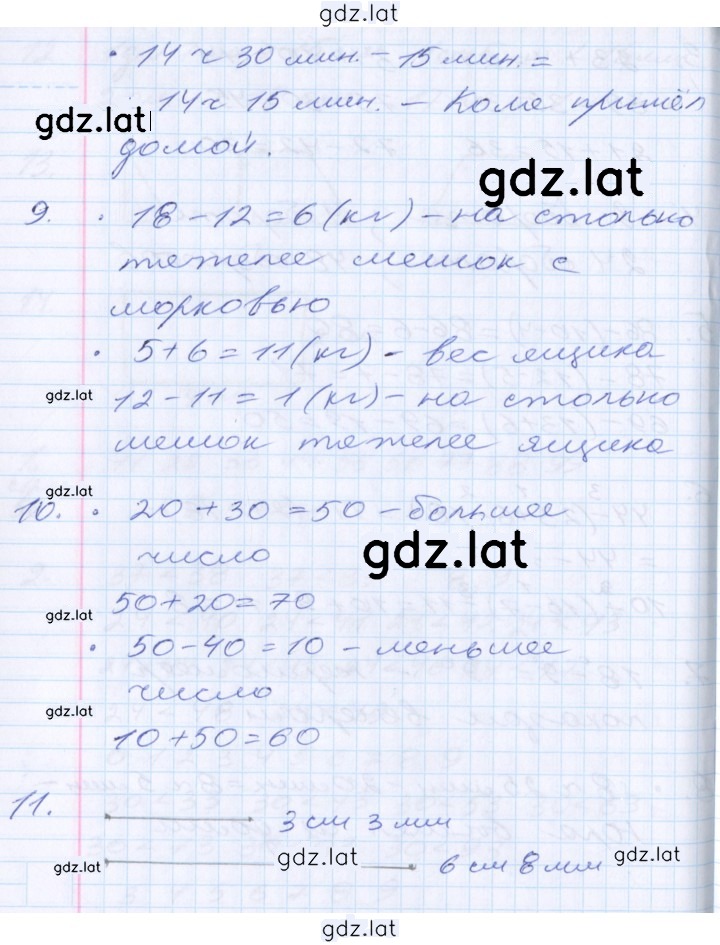 gdz.lat
· 14 ч 30 мин. – 15 мин. =
14 ч 15 мин. – Коле пришёл
gdz.lat
домой.
gdz.lat
9. · 18 – 12 = 6 (кг) – на столько
тяжелее мешок с
морковью
· 5 + 6 = 11 (кг) – вес ящика
gdz.lat
12 – 11 = 1 (кг) – на столько
мешок тяжелее ящика
gdz.lat
10. · 20 + 30 = 50 – большее
gdz.lat
число
50 + 20 = 70
gdz.lat
· 50 – 40 = 10 – меньшее
число
gdz.lat
10 + 50 = 60
11.
3 см 3 мм
gdz.lat gdz.lat gdz.lat
6 см 8 мм
gdz.lat